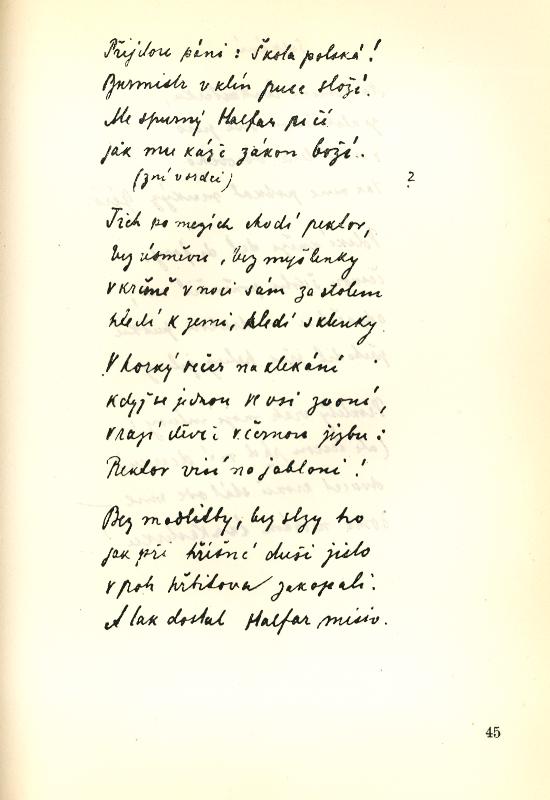 Přijdou páni: Škola polská!
Burmistr v klín ruce složí.
Ale spurný Halfar učí
jak mu káže zákon boží.
(zní v srdci) ?
Tich po mezích chodí rektor,
bez úsměvu, bez myšlenky
v krčmě v noci sám za stolem
hledí k zemi, hledí sklenky
V horký večer na klekání
když se jednou ve vsi zvoní,
vrazí děvče v černou jizbu:
Rektor visí na jabloni!
Bez modlitby, bez slzy ho
jak při hříšné duši jisto
v roh hřbitova zakopali.
A tak dostal Halfar místo.
45